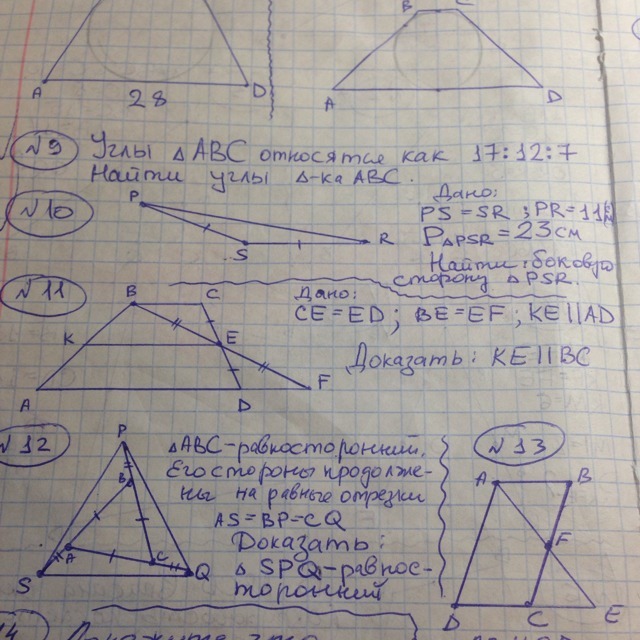 B C
A D
28
A D
№9 Углы △ABC относятся как 17:12:7
Найти углы △-ка ABC.
№10
P
S
R
Дано:
PS=SR ; PR=11
P△PSR=23см
Найти: боковую
сторону △PSR.
№11
B C
K E
F
A D
Дано:
CE=ED; BE=EF; KE||AD
Доказать: KE||BC
№12
P
B
A
C
S Q
△ABC-равносторонний.
Его стороны продолже-
ны на равные отрезки
AS=BP=CQ
Доказать:
△ SPQ-равнос-
торонний
№13
A B
F
D C E